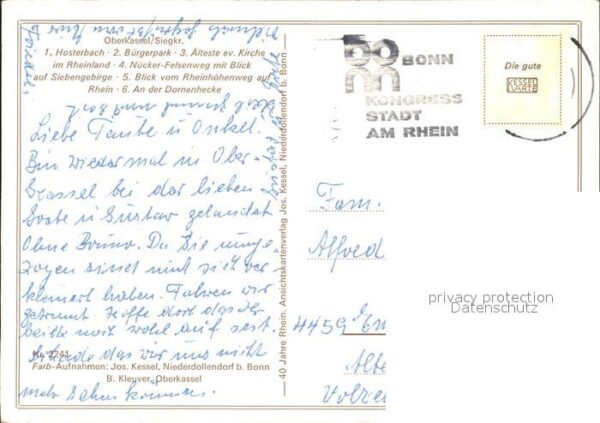 Oberkassel/Siegkr.
1. Hosterbach · 2. Bürgerpark · 3. Älteste ev. Kirche
im Rheinland · 4. Nücker-Felsenweg mit Blick
auf Siebengebirge · 5. Blick vom Rheinhöhenweg auf
Rhein · 6. An der Dornenhecke
Liebe Tante u Onkel.
Bin wieder mal in Ober-
kassel bei der lieben
u Gustav gelandet
Ohne Bruno. Da Sie umge-
zogen sind und sich ver-
kleinert haben. Fahren wir
getrennt Hoffe dort das Ihr
beide noch wohl auf seit.
Schade das wir uns nicht
mehr sehen können.
Nr. 2241
Farb-Aufnahmen: Jos. Kessel, Niederdollendorf b. Bonn
B. Kleuver, Oberkassel
40 Jahre Rhein. Ansichtskartenverlag Jos. Kessel, Niederdollendorf b. Bonn
BONN
KONGRESS
STADT
AM RHEIN
Die gute
KESSEL
KARTE
Fam.
Alfred
4459
privacy protection
Datenschutz